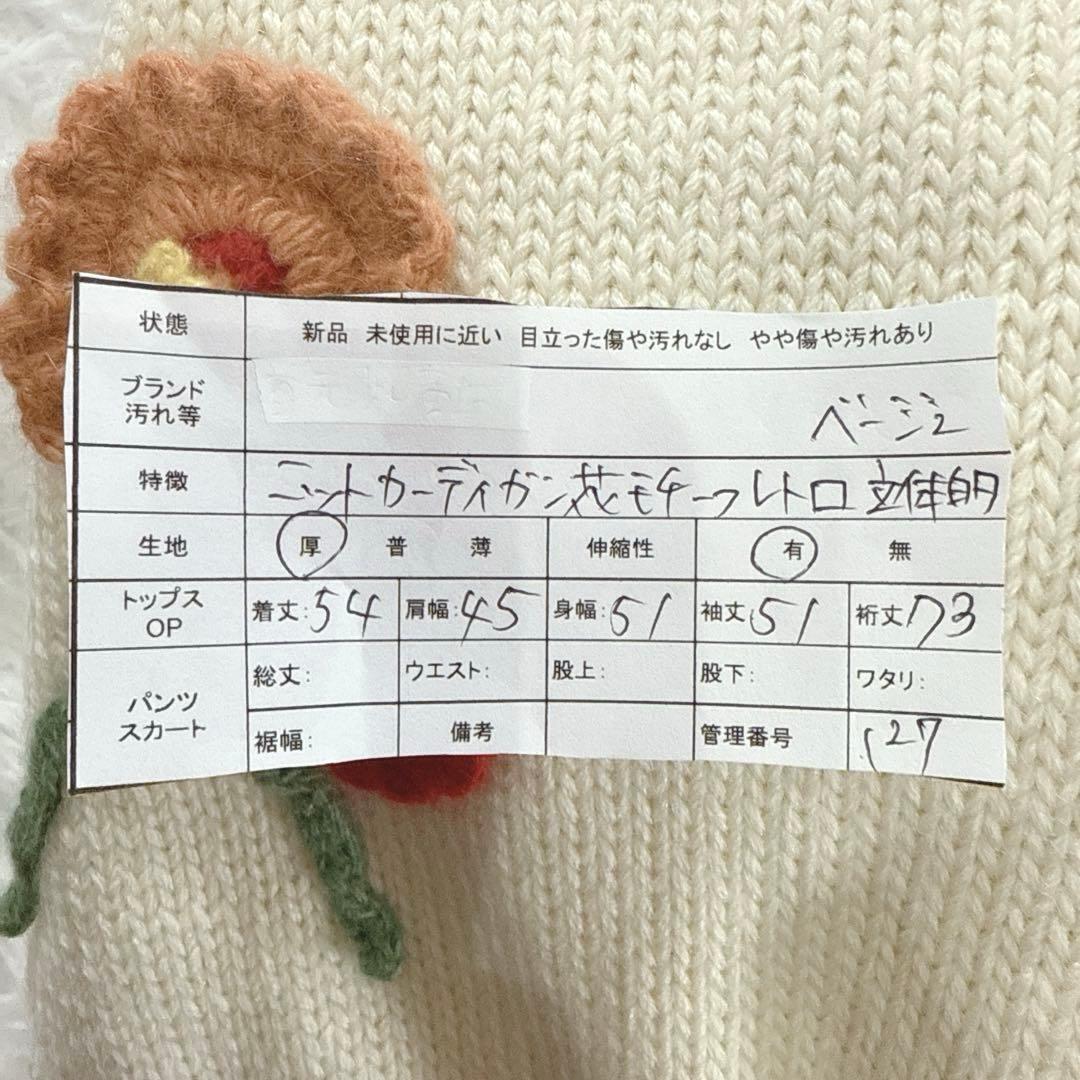 状態 新品 未使用に近い 目立った傷や汚れなし やや傷や汚れあり
ブランド
汚れ等 ベージュ
特徴 ニットカーディガン花モチーフレトロ立体的
生地 厚 普 薄 伸縮性 有 無
トップス
OP 着丈:54 肩幅:45 身幅:51 袖丈:51 裄丈:73
パンツ
スカート 総丈: ウエスト: 股上: 股下: ワタリ:
裾幅: 備考 管理番号 127